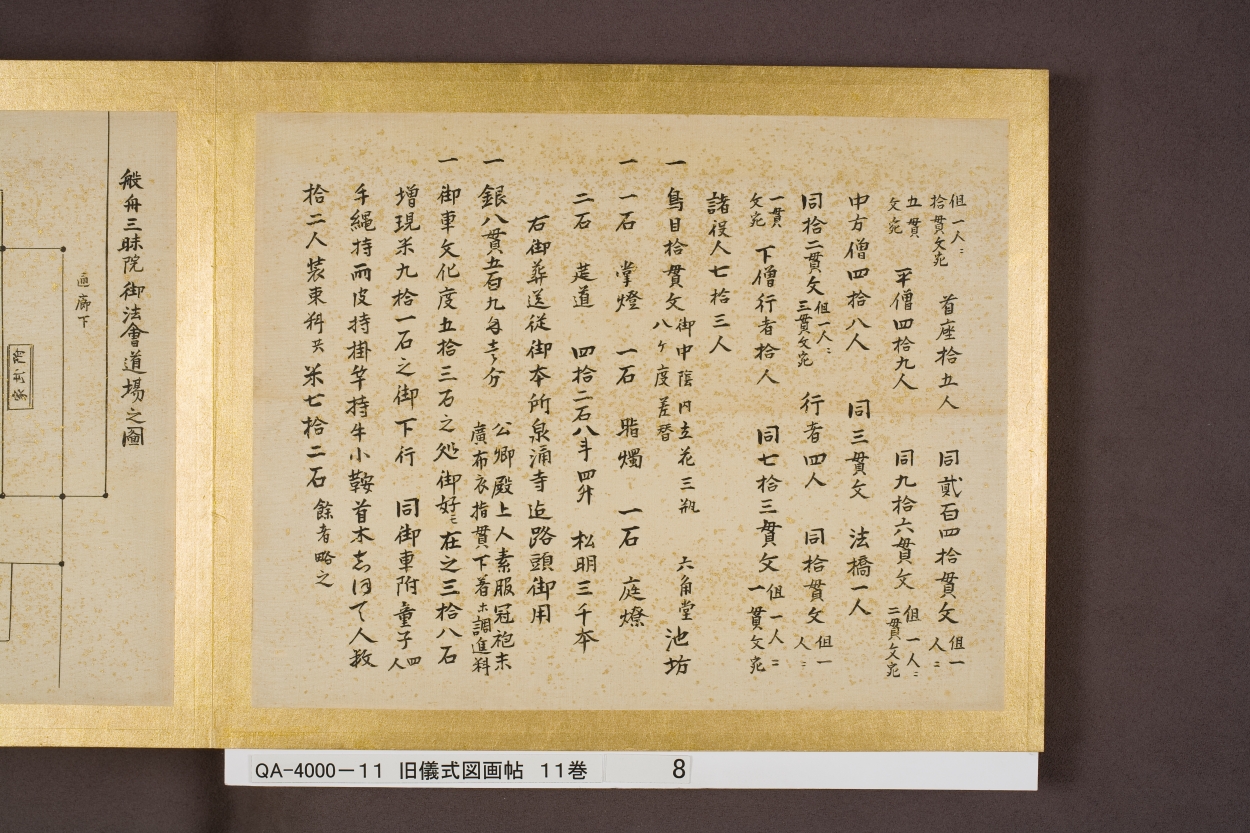 但一人ニ
拾貫文宛　首座拾五人　同貳百四拾貫文　但一人ニ
五貫文宛　平僧四拾九人　同九拾六貫文　但一人ニ二貫文宛
中方僧四拾八人　同三貫文　法橋一人
同拾二貫文　但一人ニ三貫文宛　行者四人　同拾貫文　但一人ニ
一貫文宛　下僧行者拾人　同七拾三貫文　但一人ニ一貫文宛
諸役人七拾三人
一　鳥目拾貫文　御中陰内立花三瓶八ケ度差替　六角堂　池坊
一　一石　掌燈　一石　脂燭　一石　庭燎
二石　莚道　四拾二石八斗四升　松明三千本
右御葬送従御本所泉涌寺迄路頭御用
一　銀八貫五百九匁　分　公卿殿上人素服冠袍末廣布衣指貫下着等調進料
一　御車文化度五拾三石之処御好ニ在之三拾八石
増現米九拾一石之御下行　同御車附童子四人
手縄持雨皮持掛竿持牛小鞍首木　人数
拾二人装束料共米七拾二石　餘者略之
般舟三昧院御法會道場之圖
廊下
QA-4000-11　旧儀式図画帖　11巻　8